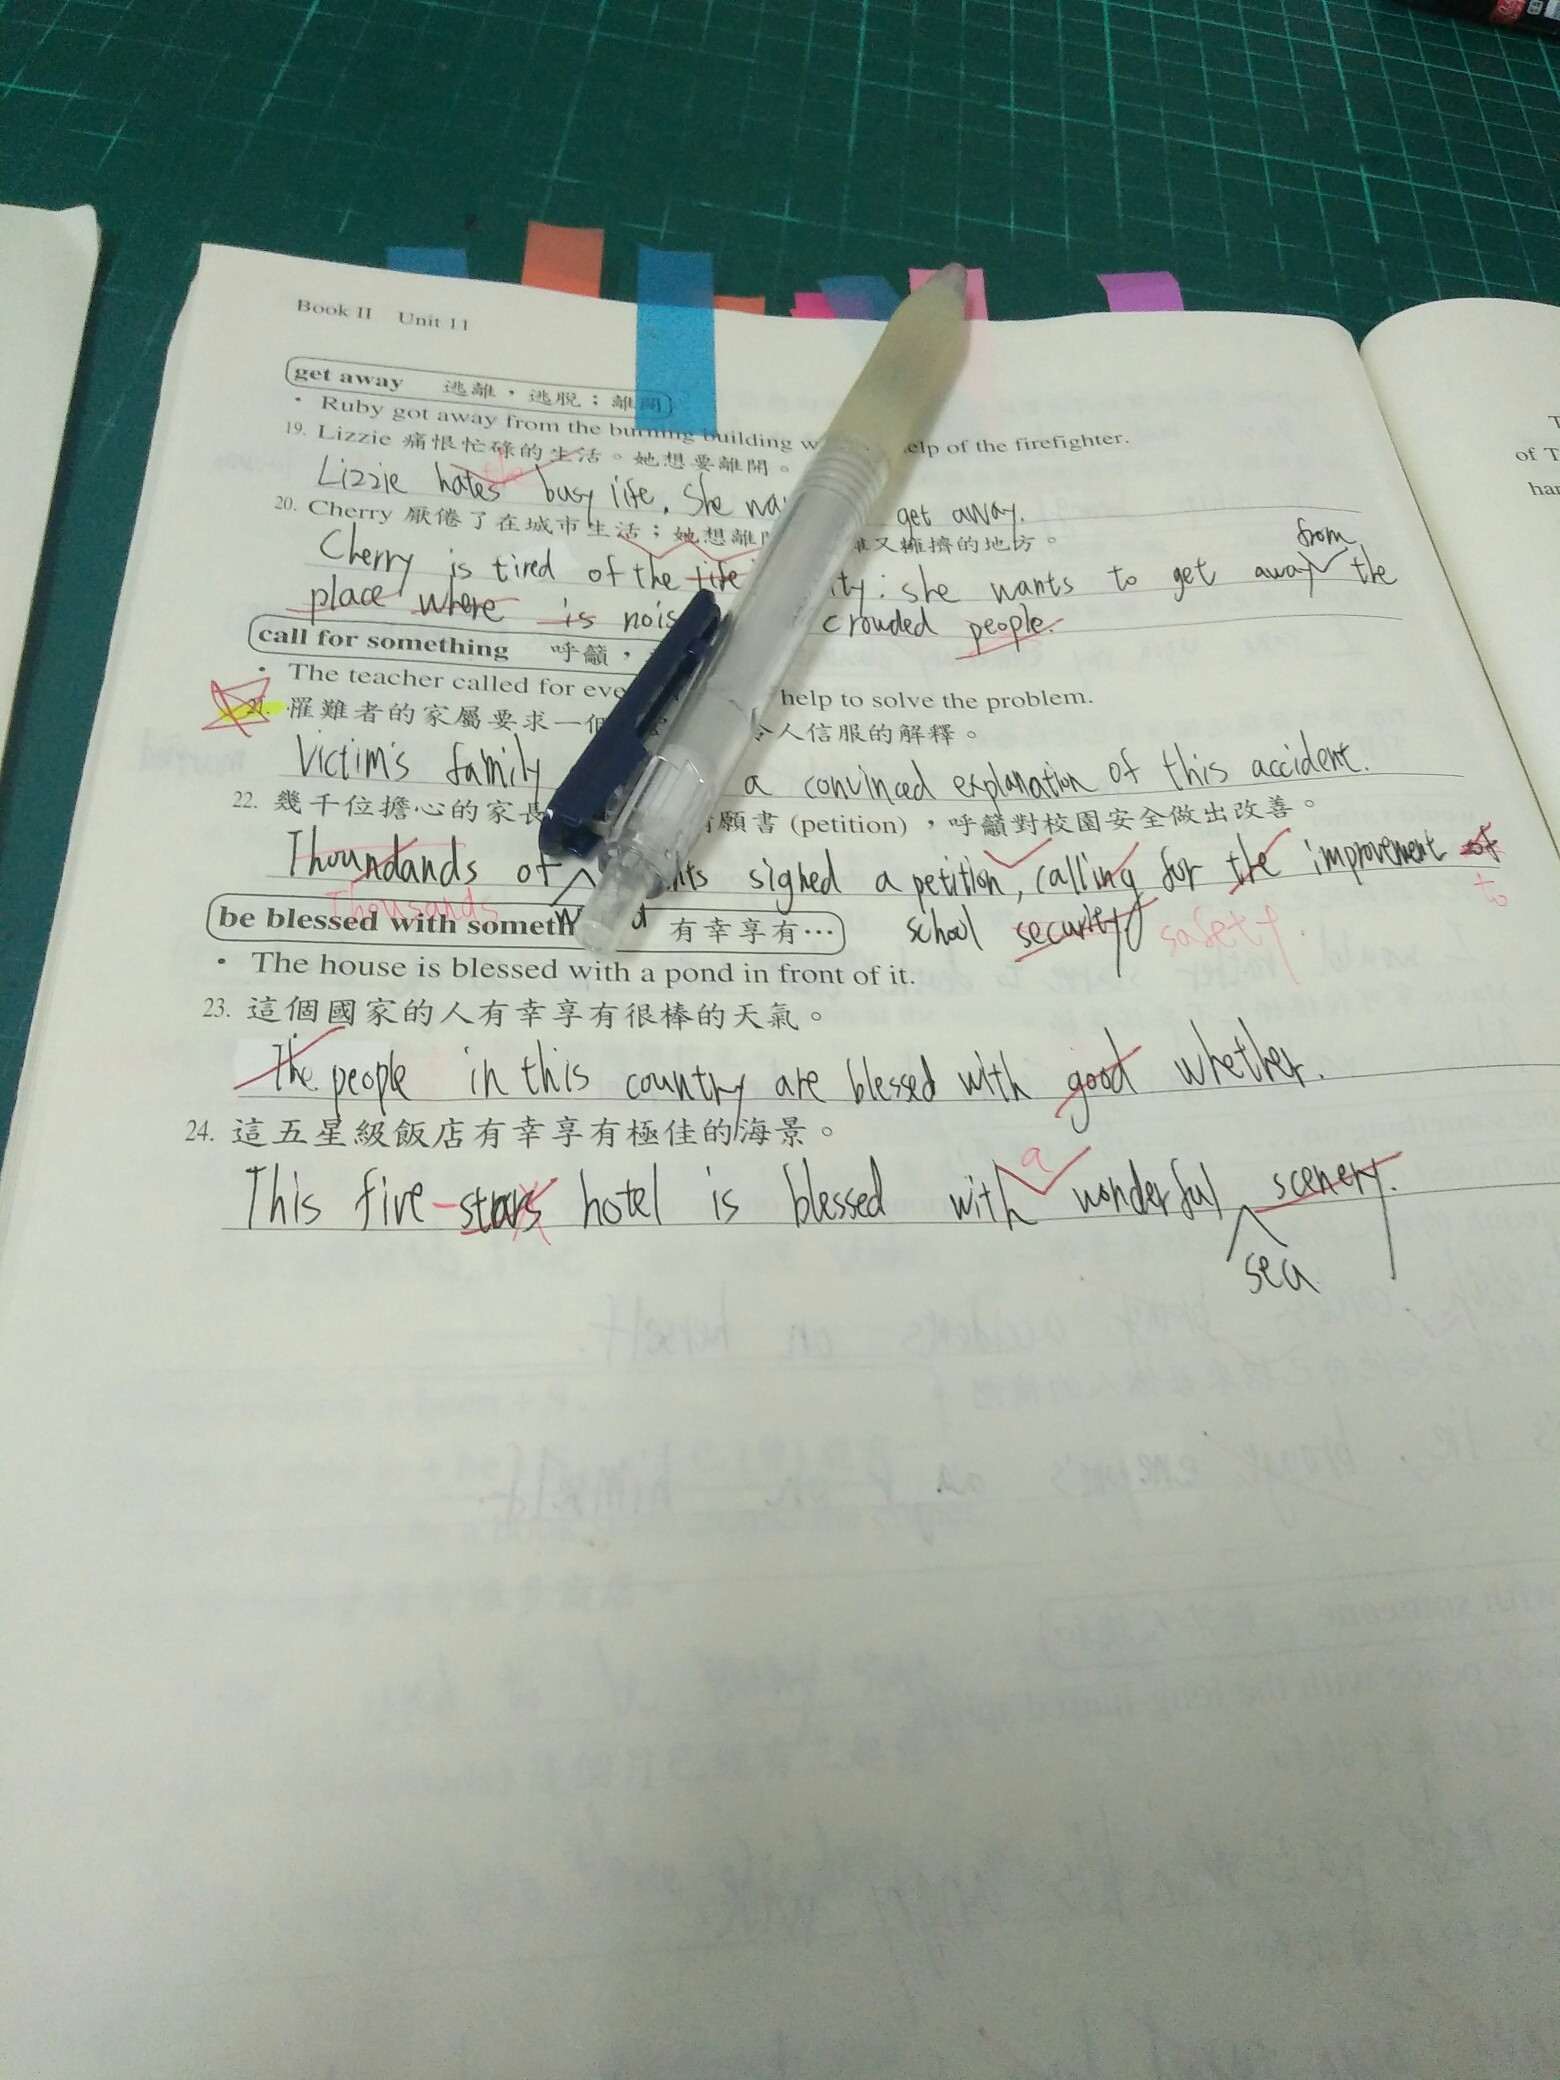 Book II Unit 11
get away 逃離，逃脫；離開
• Ruby got away from the burning building help of the firefighter.
19. Lizzie 痛恨忙碌的生活。她想要離開。
Lizzie hates busy life. She get away.
20. Cherry 厭倦了在城市生活；她想離 又擁擠的地方。
from
Cherry is tired of the life : she wants to get away the
place where is crouded people.
call for something 呼籲，
• The teacher called for help to solve the problem.
21. 罹難者的家屬要求一個 令人信服的解釋。
Victim's family a convinced explanation of this accident.
22. 幾千位擔心的家長 願書 (petition)，呼籲對校園安全做出改善。
Thoundands of signed a petition, calling for the improvement of
Thousands to
school security safety.
be blessed with 有幸享有…
• The house is blessed with a pond in front of it.
23. 這個國家的人有幸享有很棒的天氣。
The people in this country are blessed with good whether.
24. 這五星級飯店有幸享有極佳的海景。
a
This five-stars hotel is blessed with wonderful scenery.
sea